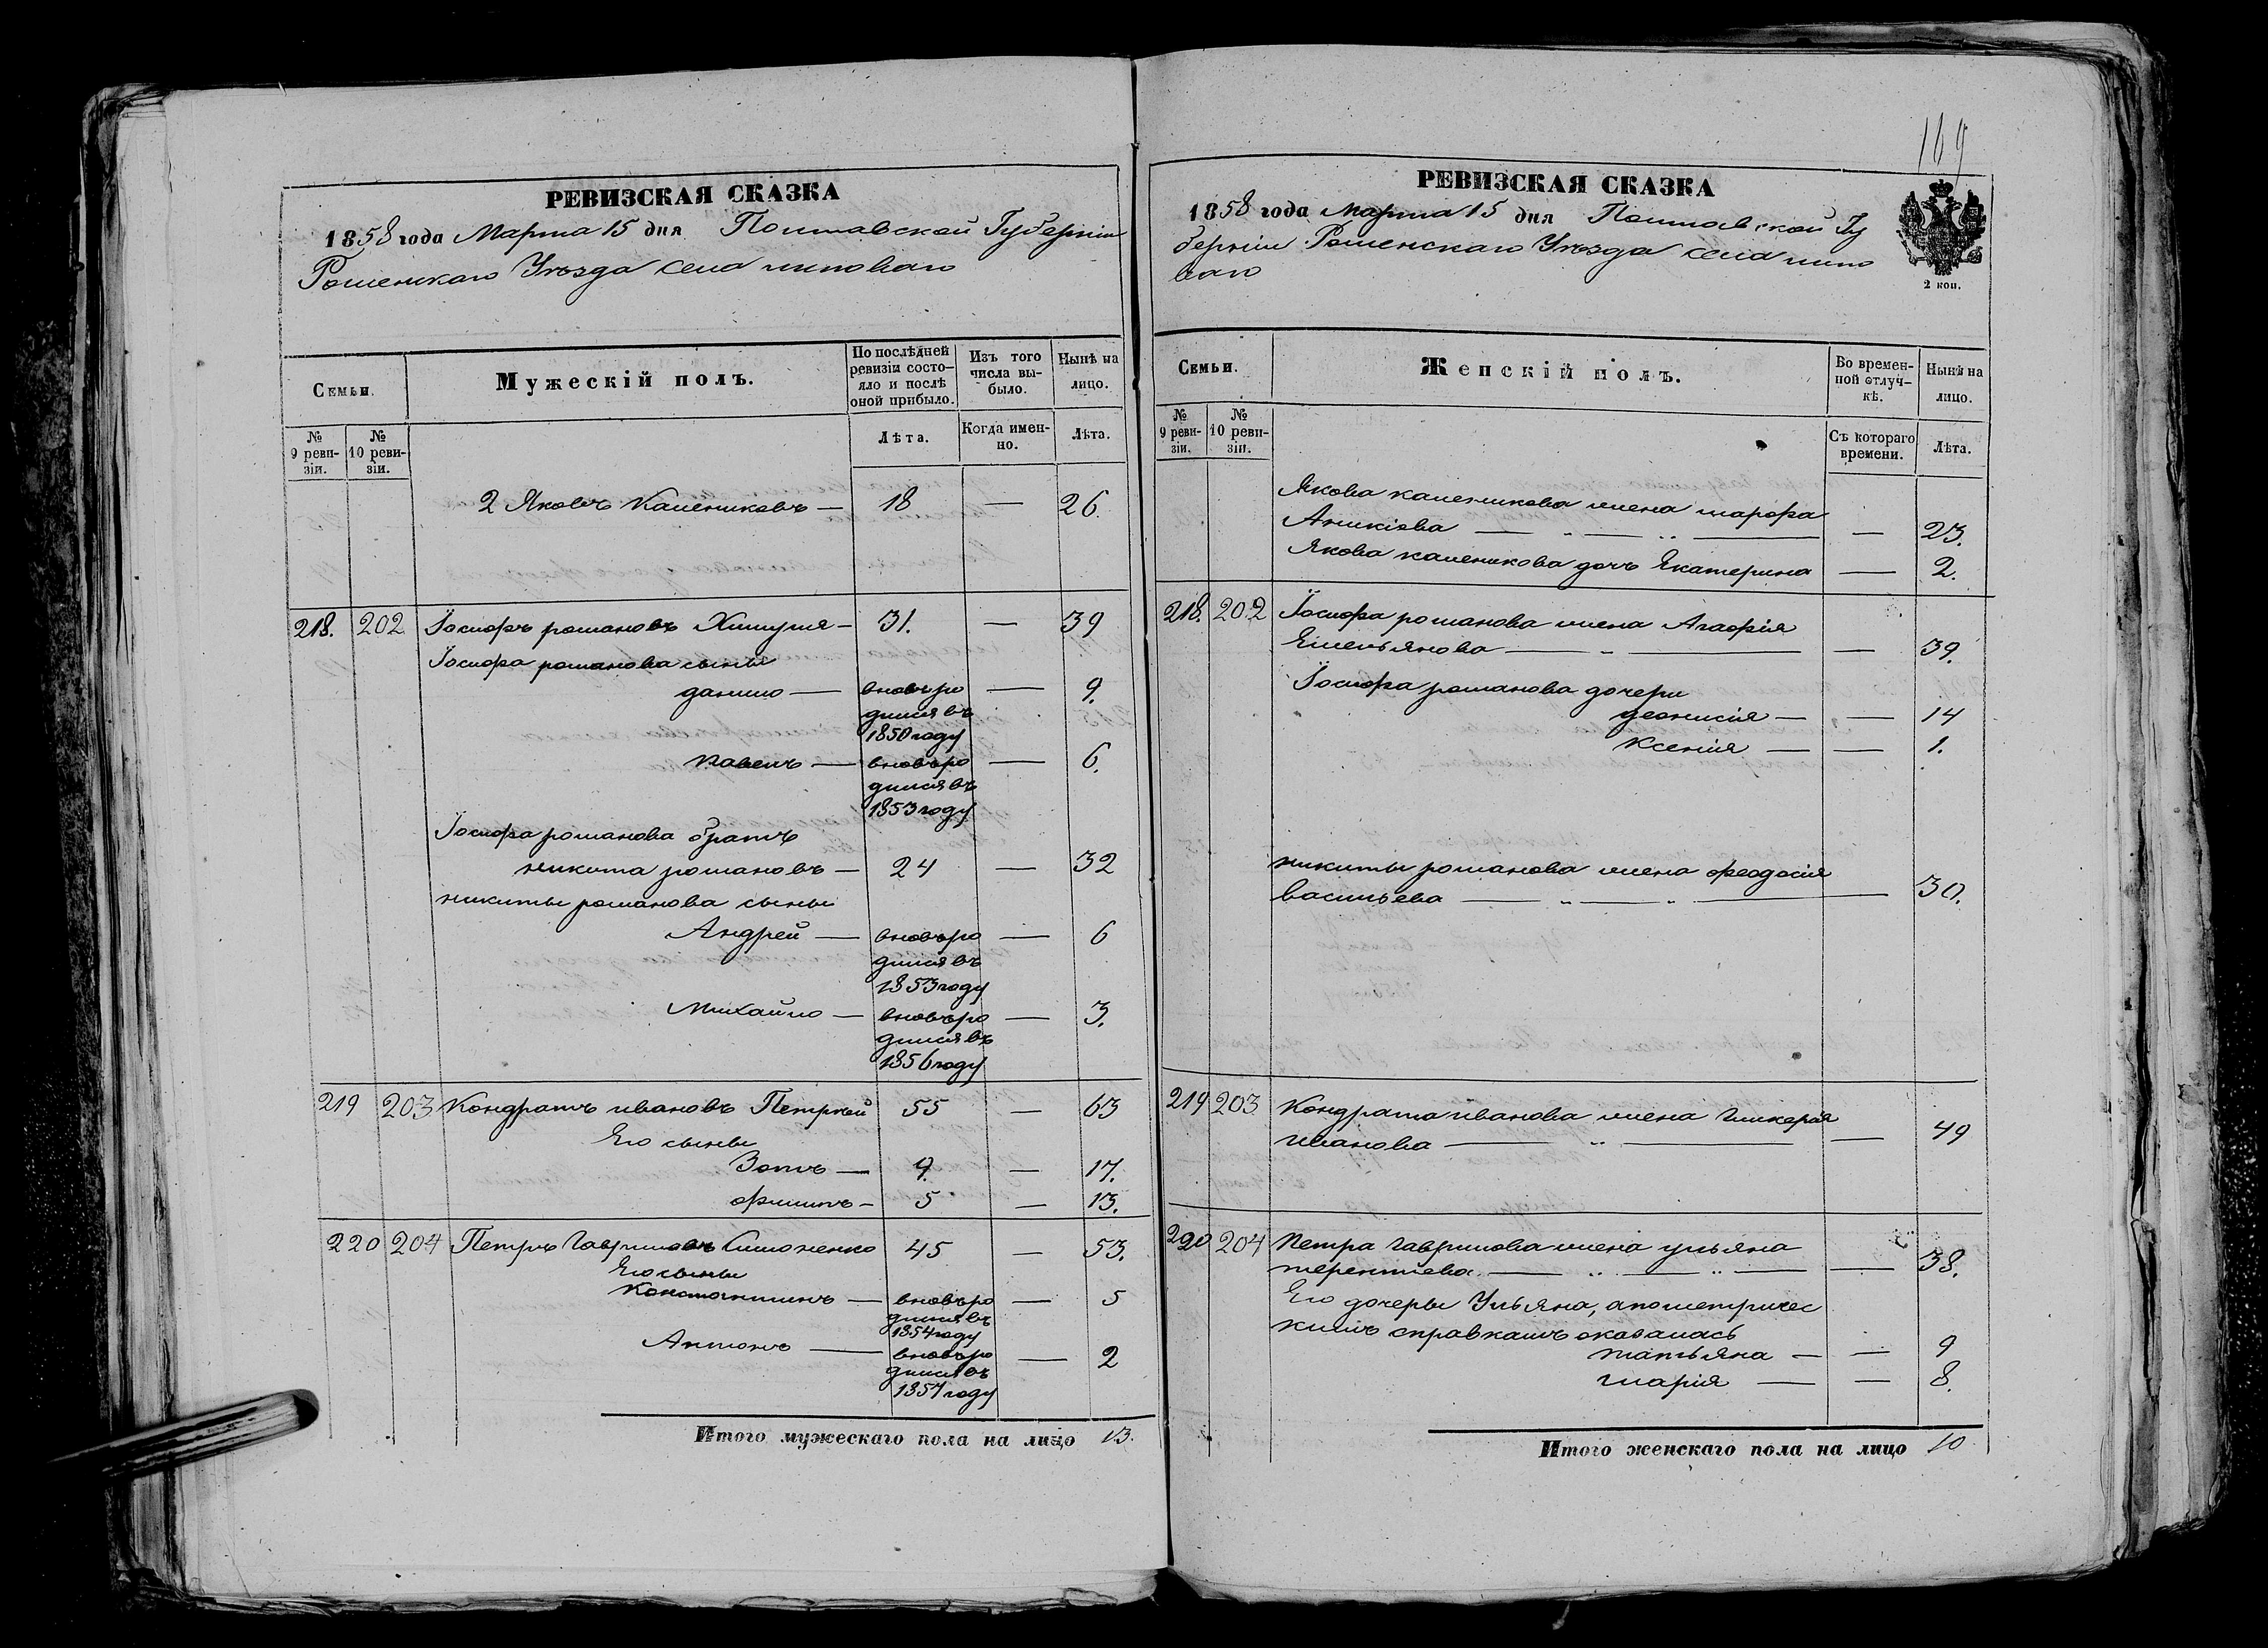 169
РЕВИЗСКАЯ СКАЗКА
1858 года Марта 15 дня Полтавской Губерніи
Роменскаго Уѣзда села липоваго
Семьи.
Мужескій полъ.
По послѣдней ревизіи состояло и послѣ оной прибыло.
Изъ того числа выбыло.
Нынѣ на лицо.
№ 9 ревизіи.
№ 10 ревизіи.
Лѣта.
Когда именно.
Лѣта.
2 Яковъ Калениковъ — 18 — 26.
218. 202 Іосифъ романовъ — 31. — 39
Іосифа романова сыны
данило — вновь ро — 9.
дился въ
1850 году
павелъ — вновь ро — 6.
дился въ
1853 году
Іосифа романова братъ
никита романовъ — 24 — 32
никиты романова сыны
Андрей — вновь ро — 6
дился въ
1853 году
Михайло — вновь ро — 3.
дился въ
1856 году
219 203 Кондратъ ивановъ 55 — 63
Его сыны
Зотъ — 9. — 17.
филипъ — 5 — 13.
220 204 Петръ Гавриловъ Симоненко 45 — 53.
Его сыны
Константинъ — вновь ро — 5
дился въ
1854 году
Антонъ — вновь ро — 2
дился въ
1857 году
Итого мужескаго пола на лицо 13.
РЕВИЗСКАЯ СКАЗКА
1858 года Марта 15 дня Полтавской Гу
берніи Роменскаго Уѣзда села липо
ваго
2 коп.
Семьи.
Женскій полъ.
Во временной отлучкѣ.
Нынѣ на лицо.
№ 9 ревизіи.
№ 10 ревизіи.
Съ котораго времени.
Лѣта.
Якова каленикова жена марфа
Аникіева — „ — „ — — 23.
Якова каленикова дочь Екатерина — 2.
218. 202 Іосифа романова жена Агафія
Емельянова — „ — — 39.
Іосифа романова дочери
деонисія — — 14
Ксенія — — 1.
никиты романова жена феодосія
васильева — „ — „ — — 30.
219 203 Кондрата иванова жена гликерія
иванова — „ — — 49
220 204 Петра гаврилова жена ульяна
терентіева — „ — „ — — 38.
Его дочеры Ульяна, а по метричес
кимъ справкамъ оказалась
татьяна — — 9
марія — — 8.
Итого женскаго пола на лицо 10